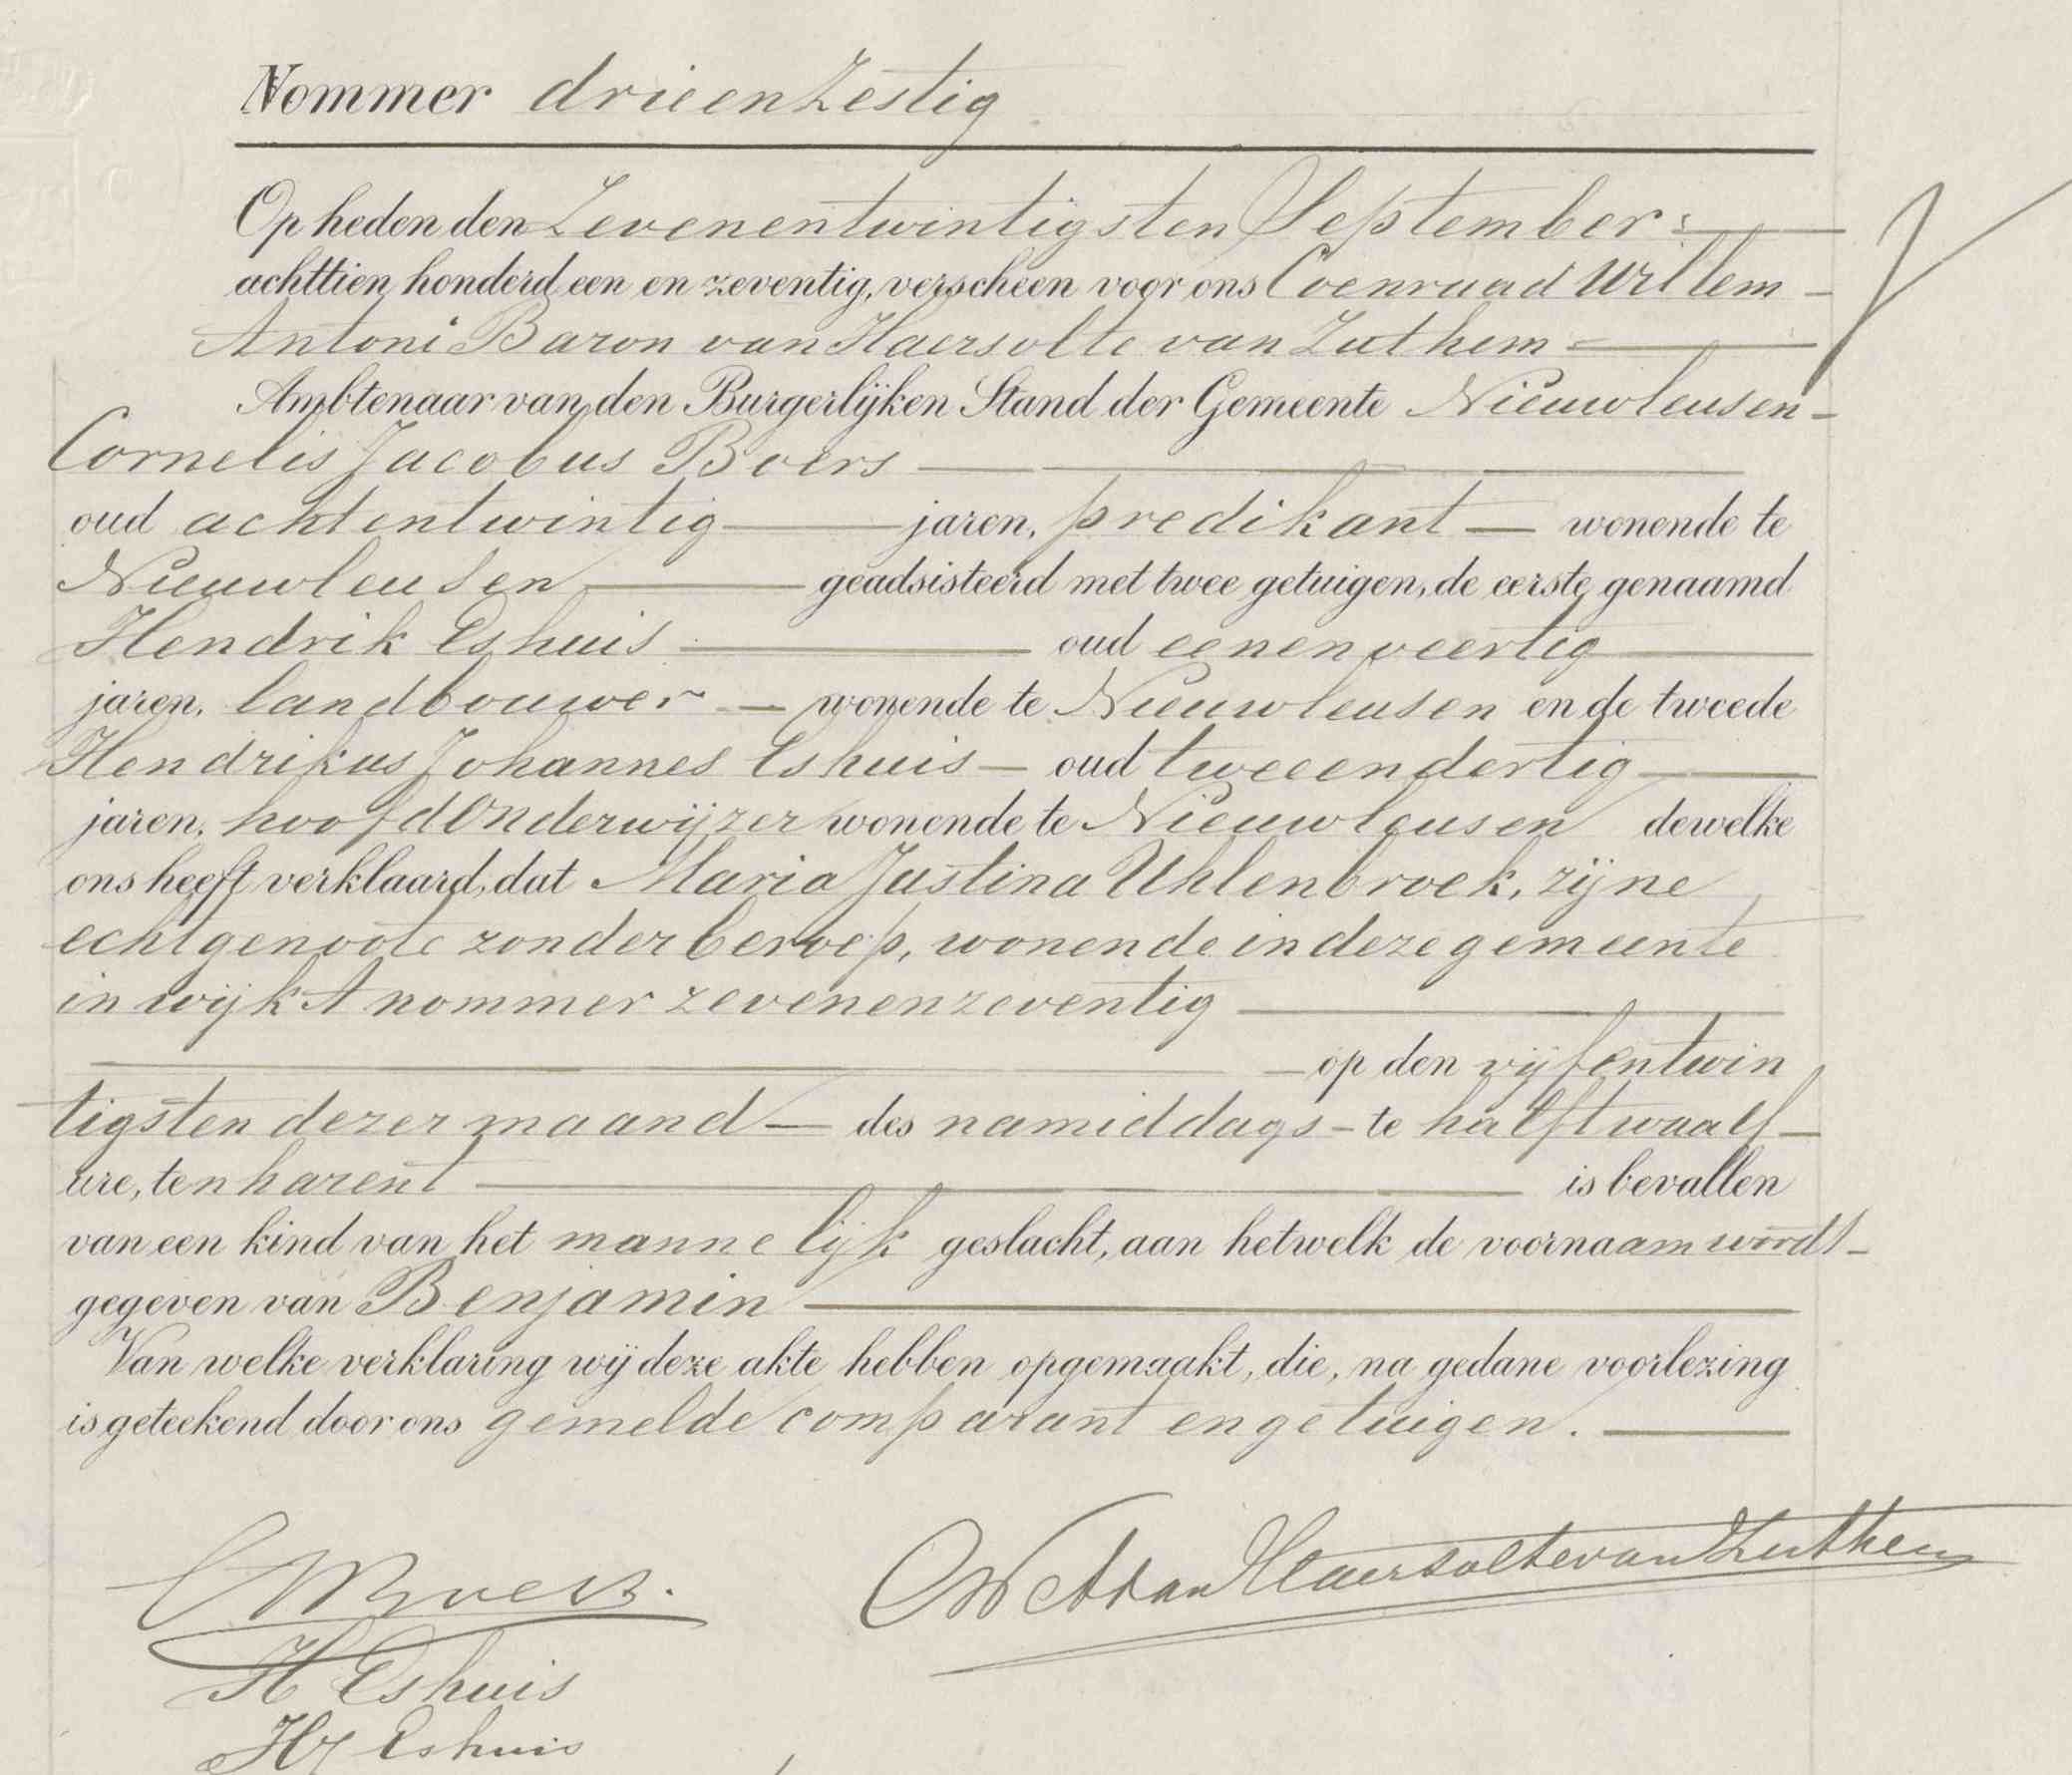 Nommer drieenzestig
Op heden den Zevenentwintigsten September
achttien honderd een en zeventig, verscheen voor ons Coenraad Willem
Antoni Baron van Haersolte van Zuthem
Ambtenaar van den Burgerlijken Stand der Gemeente Nieuwleusen
Cornelis Jacobus Boers
oud achtentwintig jaren, predikant wonende te
Nieuwleusen geadsisteerd met twee getuigen, de eerste genaamd
Hendrik Eshuis oud eenenveertig
jaren, landbouwer wonende te Nieuwleusen en de tweede
Hendrikus Johannes Eshuis oud tweeendertig
jaren, hoofdonderwijzer wonende te Nieuwleusen dewelke
ons heeft verklaard, dat Maria Justina Uhlenbroek, zijne
echtgenoote zonder beroep, wonende in deze gemeente
in wijk A nommer zevenenzeventig
op den vijfentwin
tigsten dezer maand des namiddags te half twaalf
ure, ten harent is bevallen
van een kind van het mannelijk geslacht, aan hetwelk de voornaam wordt
gegeven van Benjamin
Van welke verklaring wij deze akte hebben opgemaakt, die, na gedane voorlezing
is geteekend door ons gemelde comparant en getuigen.
CJBoers. CWAvanHaersoltevanZuthem
H Eshuis
HJ Eshuis